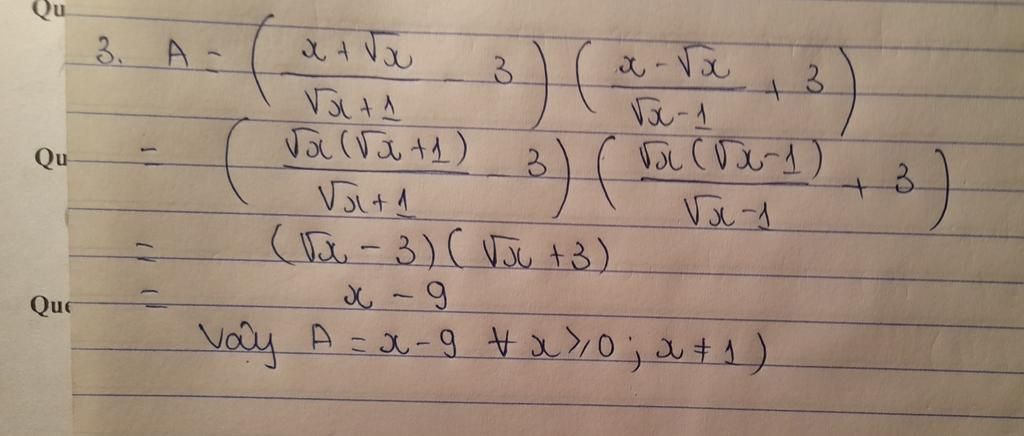 Qu
3. A = ( (x + √x)/(√x + 1) - 3 ) ( (x - √x)/(√x - 1) + 3 )
Qu
= ( √x(√x + 1)/(√x + 1) - 3 ) ( √x(√x - 1)/(√x - 1) + 3 )
= (√x - 3)(√x + 3)
Que
= x - 9
Vậy A = x - 9 ∀ x ⩾ 0 ; x ≠ 1 )